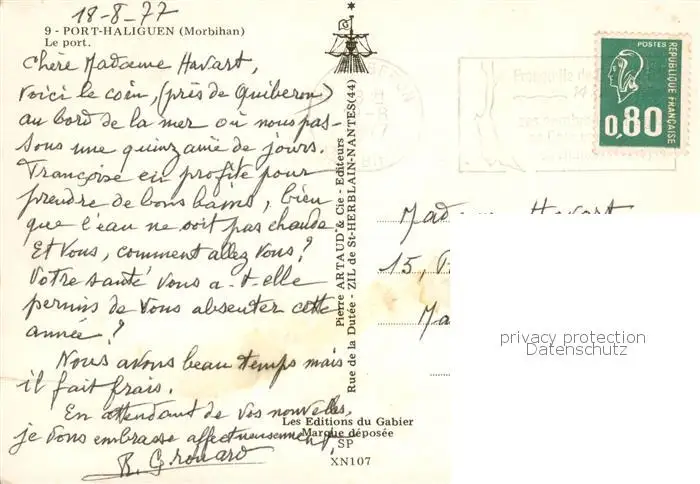 18-8-77
9 - PORT-HALIGUEN (Morbihan)
Le port.
Chère Madame Havart,
Voici le coin, (près de Quiberon)
au bord de la mer où nous pas-
sons une quinzaine de jours.
Françoise en profite pour
prendre de bons bains, bien
que l'eau ne soit pas chaude.
Et vous, comment allez vous?
Votre santé vous a-t-elle
permis de vous absenter cette
année?
Nous avons beau temps mais
il fait frais.
En attendant de vos nouvelles,
je vous embrasse affectueusement.
R. Grouard
Pierre ARTAUD & Cie - Editeurs
Rue de la Dutée - ZIL de St-HERBLAIN-NANTES (44)
Les Editions du Gabier
Marque déposée
SP
XN107
POSTES
REPUBLIQUE FRANÇAISE
0,80
Madame Havart
15,
privacy protection
Datenschutz